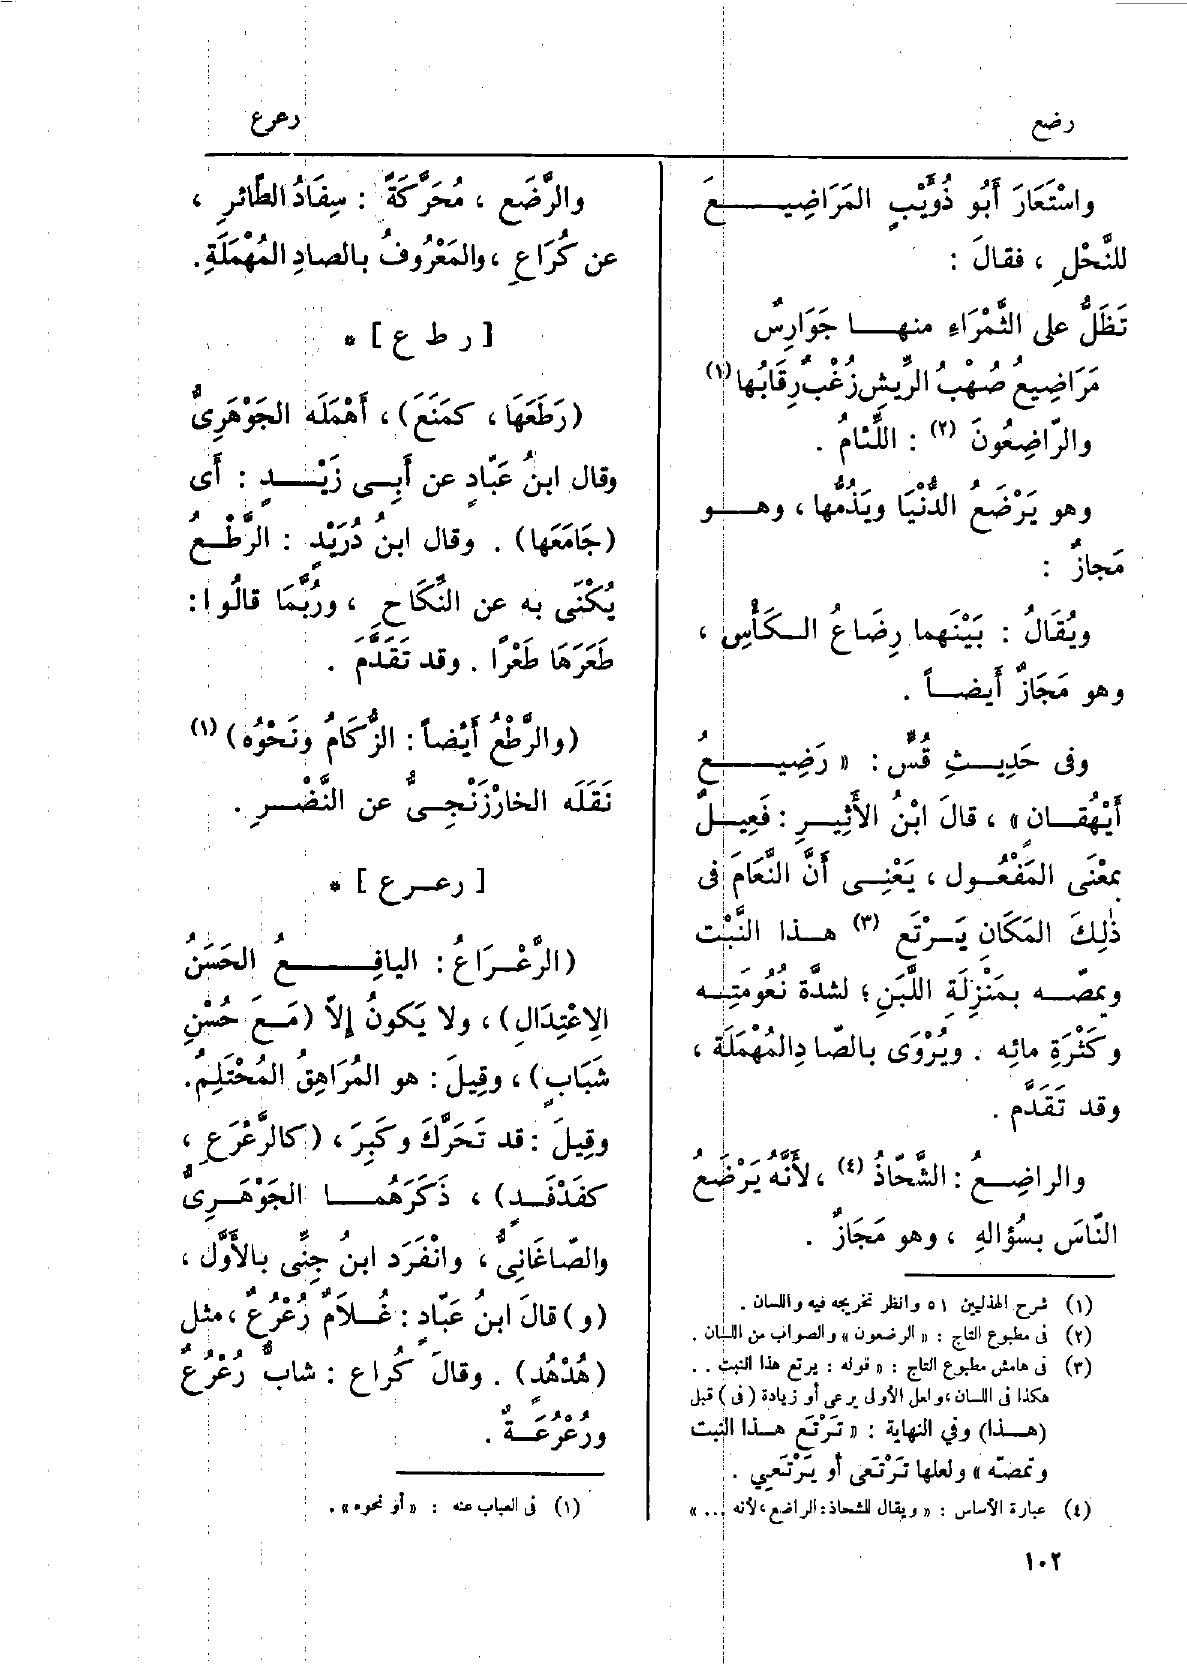 رضع
رعرع
واسْتَعَارَ أَبُو ذُؤَيْبٍ المَرَاضِيعَ
للنَّحْلِ ، فقالَ :
تَظَلُّ على الثَّمْرَاءِ منها جَوَارِسٌ
مَرَاضِيعُ صُهْبُ الرِّيشِ زُغْبٌ رِقَابُها (١)
والرَّاضِعُونَ (٢) : اللِّئامُ .
وهو يَرْضَعُ الدُّنْيَا ويَذُمُّها ، وهو
مَجازٌ :
ويُقَالُ : بَيْنَهما رِضَاعُ الكَأْسِ ،
وهو مَجَازٌ أَيضاً .
وفى حَدِيثِ قُسٍّ : « رَضِيعُ
أَيْهُقانٍ » ، قالَ ابْنُ الأَثِيرِ : فَعِيلٌ
بمعْنَى المَفْعُول ، يَعْنِى أَنَّ النَّعَامَ فى
ذٰلِكَ المَكَانِ يَرْتَع (٣) هذا النَّبْتَ
ويمصّه بمَنْزِلَةِ اللَّبَنِ ؛ لشدَّة نُعُومَتِه
وكَثْرَةِ مائِه . ويُرْوَى بالصّادِ المُهْمَلَة ،
وقد تَقَدَّم .
والراضِعُ : الشَّحّاذُ (٤) ، لأَنَّهُ يَرْضَعُ
النّاسَ بسُؤَالهِ ، وهو مَجَازٌ .
(١) شرح الهذليين ٥١ وانظر تخريجه فيه واللسان .
(٢) فى مطبوع التاج : « الرضعون » والصواب من اللسان .
(٣) فى هامش مطبوع التاج : « قوله : يرتع هذا النبت . .
هكذا فى اللسان ، ولعل الأولى يرعى أو زيادة ( فى ) قبل
(هذا) وفي النهاية : « تَرْتَع هذا النبت
وتمصّه » ولعلها تَرْتَعى أو يَرْتَعي .
(٤) عبارة الأساس : « ويقال للشحاذ : الراضع ، لأنه ... »
والرَّضَع ، مُحَرَّكَةً : سِفَادُ الطّائرِ ،
عن كُرَاعٍ ، والمَعْرُوفُ بالصادِ المُهْمَلَةِ .
[ ر ط ع ] *
(رَطَعَهَا ، كمَنَعَ) ، أَهْمَلَه الجَوْهَرِىُّ
وقال ابنُ عَبّادٍ عن أَبِى زَيْدٍ : أَى
(جَامَعَها) . وقال ابنُ دُرَيْدٍ : الرَّطْعُ
يُكْنَى به عن النِّكَاحِ ، ورُبَّمَا قالُوا :
طَعَرَهَا طَعْرًا . وقد تَقَدَّمَ .
(والرَّطْعُ أَيْضاً : الزُّكَامُ ونَحْوُه) (١)
نَقَلَه الخارْزَنْجِىُّ عن النَّضْرِ .
[ رعرع ] *
(الرَّعْرَاعُ : اليافِعُ الحَسَنُ
الِاعْتِدَالِ) ، ولا يَكونُ إلاّ (مَعَ حُسْنِ
شَبَابٍ) ، وقِيلَ : هو المُرَاهِقُ المُحْتَلِمُ .
وقِيلَ : قد تَحَرَّكَ وكَبِرَ ، (كالرَّعْرَعِ ،
كفَدْفَدٍ) ، ذَكَرَهُما الجَوْهَرِىُّ
والصّاغَانِىُّ ، وانْفَرَد ابنُ جِنِّى بالأَوَّل ،
(و) قالَ ابنُ عَبّادٍ : غُلَامٌ رُعْرُعٌ ، مثل
(هُدْهُدٍ) . وقالَ كُراع : شابٌّ رُعْرُعٌ
ورُعْرُعَةٌ .
(١) فى العباب عنه : « أو نحوه » .
١٠٢